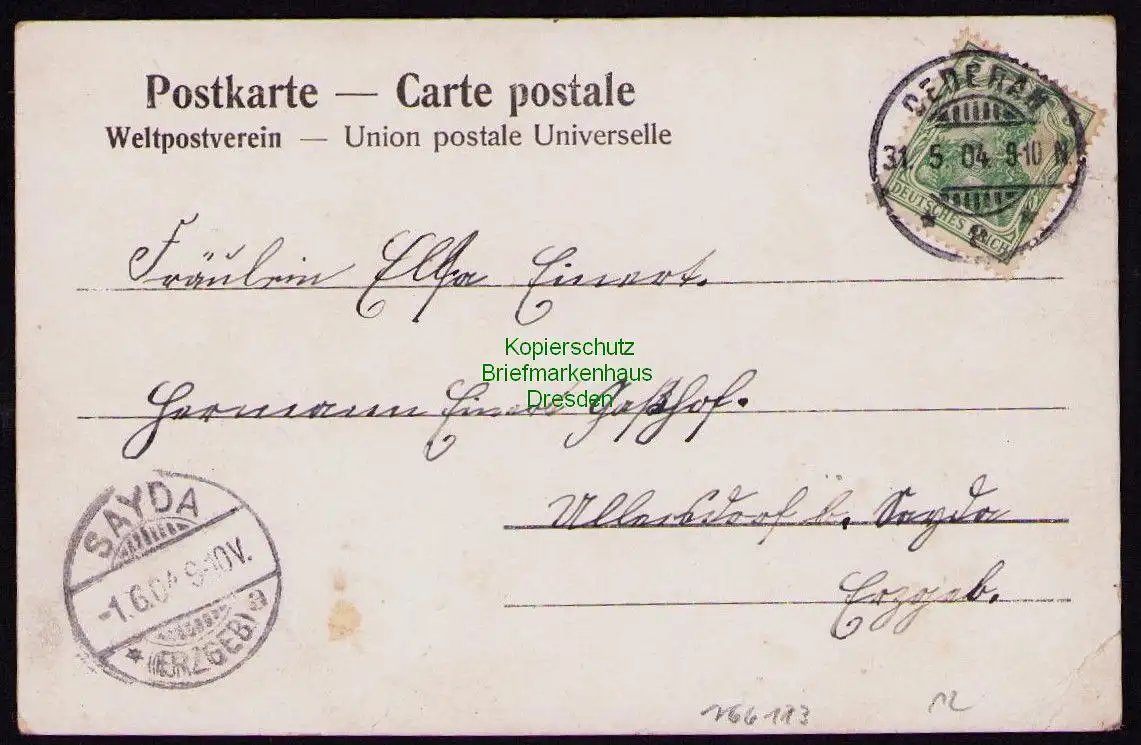 Postkarte — Carte postale
Weltpostverein — Union postale Universelle
OEDERAN
31. 5. 04. 9-10 N.
DEUTSCHES REICH
Fräulein Elsa Einert.
Kopierschutz
Briefmarkenhaus
Dresden
Hermann Einert Gaßthof.
Ullersdorf b. Sayda
Erzgeb.
SAYDA
-1.6.04 9-10V.
* (ERZGEB) a
166113